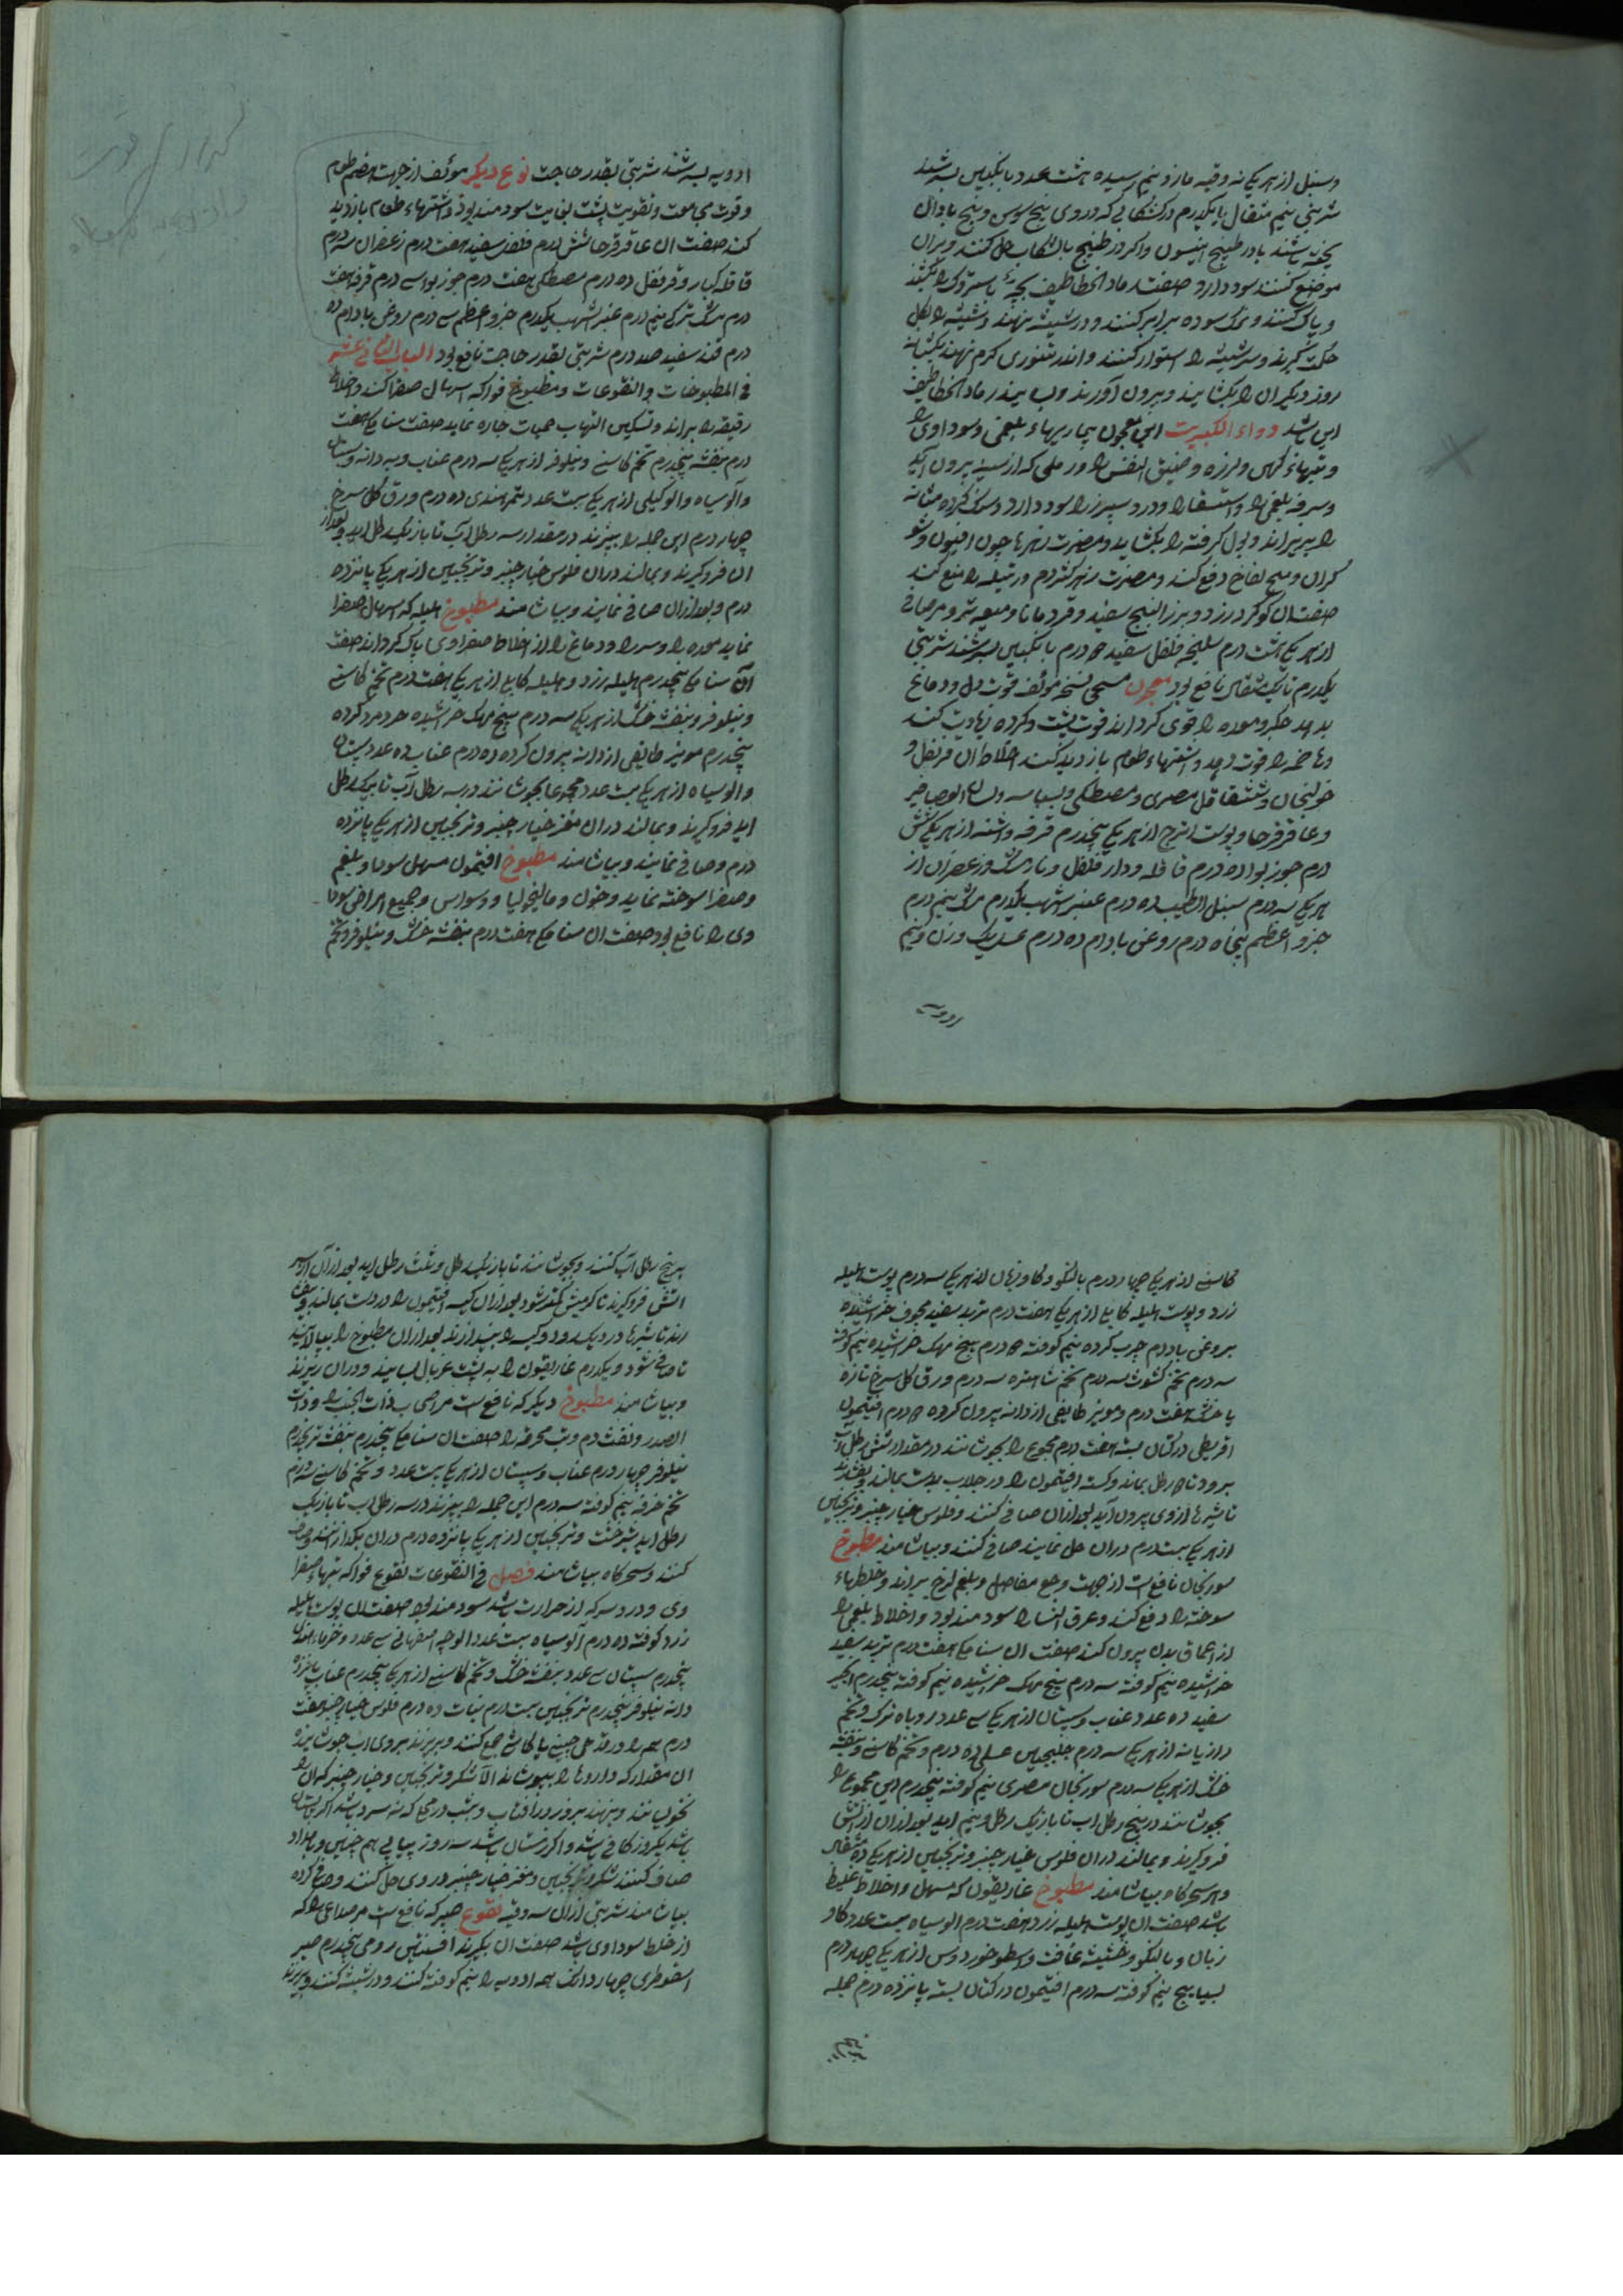 وسنبل از هر یکی نه وقیه مازو نیم رسیده هشت عدد بانگبین بسرشند
شربتی نیم مثقال یا یکدرم در کشکابی که در وی بیخ سوس و بیخ بادیان
پخته باشند یا در طبیخ انیسون واکر در طبیخ با کشکاب حل کنند و بران
موضع کنند سود دارد صفت رماد الخطاطیف بچه پرستوک را بکشند
و پاک کنند و نمک سوده برابر کنند و در شیشه نهند و شیشه را بکل
حکمت کیرند و سر شیشه را استوار کنند و اندر تنوری کرم نهند یکشبانه
روز دیکر ان را بکشایند و بیرون آورند و بسایند رماد الخطاطیف
این باشد دواء الکبریت این معجون بیماریهاء بلغمی و سوداوی را
و تبهاء کهن و لرزه و ضیق النفس را و رملی که از سینه بیرون آید
و سرفه بلغمی را و استسقا را و درد سپرز را سود دارد و سنک کرده و مثانه
را بریزاند و بول کرفته را بکشاید و مضرت زهرها چون افیون و شو
کران و بیخ لفاح دفع کند و مضرت زهر کژدم و رتیله را منع کند
صفت ان کوکرد زرد و بزر البنج سفید و قردمانا و میعه تر و مر صافی
از هر یکی هشت درم سلیخه فلفل سفید درم بانگبین بسرشند شربتی
یکدرم تا یک مثقال نافع بود معجون مسیحی نسخه مؤلف قوت دل و دماغ
بدهد جکر و معده را قوی کرداند قوت پشت و کرده زیادت کند
و هاضمه را قوت دهد و اشتهاء طعام بازدید کند اخلاط ان قرنفل و
خولنجان و شقاقل مصری و مصطکی و بسباسه و لسان العصافیر
و عاقرقرحا و پوست اترج از هر یکی پنجدرم قرفه و اشنه از هر یکی شش
درم جوز بوا ده درم قاقله و دار فلفل و نارمشک و زعفران از
هر یکی سه درم سنبل الطیب ده درم عنبر اشهب یکدرم مشک نیم درم
جزو اعظم پنجاه درم روغن بادام ده درم عسل یک وزن و نیم
ادویه بسرشند شربتی بقدر حاجت نوع دیکر مؤلف از جهت هضم طعام
و قوت مجامعت و تقویت پشت بغایت سودمند بود و اشتهاء طعام بازدید
کند صفت ان عاقرقرحا شش درم فلفل سفید هفت درم زعفران سه درم
قاقله کبار و قرنفل ده درم مصطکی هفت درم جوز بوا سه درم قرفه هفت
درم مشک ترکی نیم درم عنبر اشهب یکدرم جزو اعظم سی درم روغن بادام ده
درم قند سفید صد درم شربتی بقدر حاجت نافع بود الباب الثانی عشر
فی المطبوخات والنقوعات و مطبوخ فواکه اسهال صفرا کند و اخلاط
رقیقه را براند و تسکین التهاب حمیات حاره نماید صفت سنا مکی هفت
درم بنفشه پنجدرم تخم کاسنی و نیلوفر از هر یکی سه درم عناب و به دانه و سپستان
و آلو سیاه و الو کیلی از هر یکی بیست عدد تمر هندی ده درم ورق کل سرخ
چهار درم این جمله را بپزند در مقدار سه رطل آب تا باز یک رطل اید و بعد از
ان فرو کیرند و بمالند دران فلوس خیارچنبر و ترنجبین از هر یکی پانزده
درم و بعد ازان صافی نمایند و بیاشامند مطبوخ هلیله که اسهال صفرا
نماید معده را و سر را و دماغ را از اخلاط صفراوی پاک کرداند صفت
آن سنا مکی پنجدرم هلیله زرد و هلیله کابلی از هر یکی هفت درم تخم کاسنی
و نیلوفر و بنفشه خشک از هر یکی سه درم بیخ مهک خراشیده خرد مرد کرده
پنجدرم مویز طایفی از دانه بیرون کرده ده درم عناب ده عدد سپستان
و الو سیاه از هر یکی بیست عدد مجموعا بجوشانند در سه رطل آب تا یک رطل
اید فرو کیرند و بمالند دران مغز خیارچنبر و ترنجبین از هر یکی پانزده
درم و صافی نمایند و بیاشامند مطبوخ افتیمون مسهل سودا و بلغم
و صفرا سوخته نماید و جنون و مالیخولیا و وسواس و جمیع امراض سودا
وی را نافع بود صفت ان سنا مکی هفت درم بنفشه خشک و نیلوفر و تخم
کاسنی از هر یکی چهار درم بالنکو و کاوزبان از هر یکی سه درم پوست هلیله
زرد و پوست هلیله کابلی از هر یکی هفت درم تربد سفید مجوف خراشیده
بروغن بادام چرب کرده نیم کوفته درم بیخ مهک خراشیده نیم کوفته
سه درم تخم کشوث سه درم تخم شاهتره سه درم ورق کل سرخ تازه
یا خشک هفت درم و مویز طایفی از دانه بیرون کرده درم افتیمون
اقریطی در کتان بسته هفت درم مجموع را بجوشانند در مقدار شش رطل آب
برود تا رطل بماند و کیسه افتیمون را در جلاب بدست بمالند و بفشارند
تا شیرها از وی بیرون آید بعد ازان صافی کنند و فلوس خیارچنبر و ترنجبین
از هر یکی بیست درم دران حل نمایند صافی کنند و بیاشامند مطبوخ
سورنجان نافعست از جهت وجع مفاصل و بلغم لزج براند و خلطهاء
سوخته را دفع کند و عرق النسا را سودمند بود و اخلاط بلغمی را
از اعماق بدن بیرون کند صفت ان سنا مکی هفت درم تربد سفید
خراشیده نیم کوفته سه درم بیخ مهک خراشیده نیم کوفته پنجدرم انجیر
سفید ده عدد عناب و سپستان از هر یکی سی عدد روباه ترک و تخم
رازیانه از هر یکی سه درم جلنجبین عسلی ده درم و تخم کاسنی و بنفشه
خشک از هر یکی سه درم سورنجان مصری نیم کوفته پنجدرم این مجموع را
بجوشانند در پنج رطل اب تا باز یک رطل و نیم اید بعد ازان از اتش
فرو کیرند و بمالند دران فلوس خیارچنبر و ترنجبین از هر یکی ده مثقال
و هر سحرکاه بیاشامند مطبوخ غاریقون که مسهل و اخلاط غلیظ
باشد صفت ان پوست هلیله زرد هفت درم الو سیاه بیست عدد کاو
زبان و بالنکو و حشیشه غافت و اسطوخودوس از هر یکی چهار درم
بسپایج نیم کوفته سه درم افتیمون در کتان بسته پانزده درم جمله
بر پنج رطل آب کنند و بجوشانند تا باز یک رطل و ثلث رطل اید بعد ازان از سر
اتش فرو کیرند تا کرمیش کمتر شود بعد ازان کیسه افتیمون را در دست بمالند و بفشا
رند تا شیرها در دیک رود و کیسه را بیندازند بعد ازان مطبوخ را بپالایند
تا صافی شود و یکدرم غاریقون را به پشت غربال بسایند و دران ریزند
و بیاشامند مطبوخ دیکر که نافعست مر اصحاب ذات الجنب را و ذات
الصدر و نفث دم و تب محرقه را صفت ان سنا مکی پنجدرم بنفشه تر پنجدرم
نیلوفر چهار درم عناب و سپستان از هر یکی بیست عدد و تخم کاسنی سه درم
تخم خرفه نیم کوفته سه درم این جمله را بپزند در سه رطل اب تا باز یک
رطل اید شیرخشت و ترنجبین از هر یکی پانزده درم دران بکدازنند و صاف
کنند و سحرکاه بیاشامند فصل فی النقوعات نقوع فواکه تبهاء صفرا
وی و درد سر که از حرارت باشد سودمند بود صفت ان پوست هلیله
زرد کوفته ده درم آلو سیاه بیست عدد الوچه اصفهانی سی عدد و خرما هندی
پنجدرم سپستان سی عدد بنفشه خشک و تخم کاسنی از هر یکی پنجدرم عناب پانزده
دانه نیلوفر پنجدرم ترنجبین بیست درم نبات ده درم فلوس خیارچنبر هفت
درم همه را در قدحی چینی یا کاشی جمع کنند و بریزند بر وی اب جوشانیده
ان مقدار که داروها را بپوشاند الا شکر و ترنجبین و خیارچنبر که ان را
نخویسانند و بنهند بروز در افتاب و بشب در محلی که نه سرد باشد اکر تابستان
باشد یکروز کافی باشد و اکر زمستان باشد سه روز پیاپی هم چنین و بامداد
صاف کنند شکر و ترنجبین و مغز خیارچنبر در وی حل کنند و صافی کرده
بیاشامند شربتی ازان سه وقیه نقوع صبر که نافعست مر صداعی را که
از خلط سوداوی باشد صفت ان بکیرند افسنتین رومی پنجدرم صبر
اسقوطری چهار دانک همه ادویه را نیم کوفته کنند و در شیشه کنند و بریزند